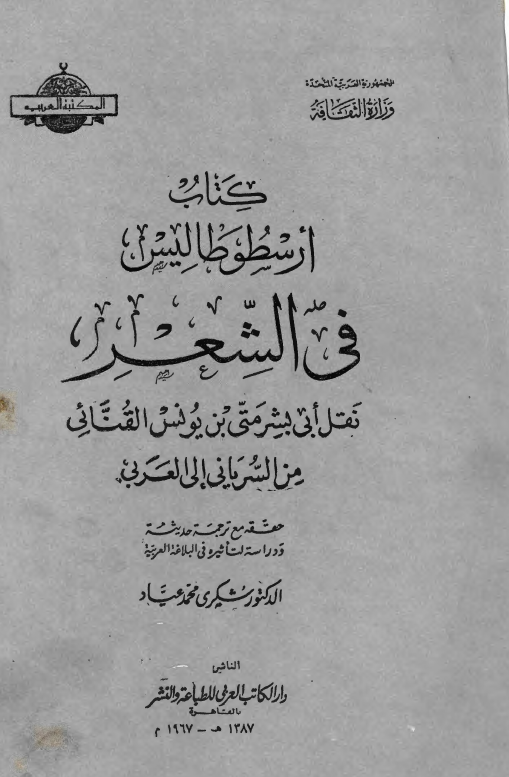 الجمهورية العربية المتحدة
وزارة الثقافة
المكتبة العربية
كتاب
أرسطوطاليس
في الشعر
نقل أبي بشر متى بن يونس القنائي
من السرياني إلى العربي
حققه مع ترجمة حديثة
ودراسة لتأثيره في البلاغة العربية
الدكتور شكري محمد عياد
الناشر
دار الكاتب العربي للطباعة والنشر
بالقاهرة
١٣٨٧ هـ - ١٩٦٧ م